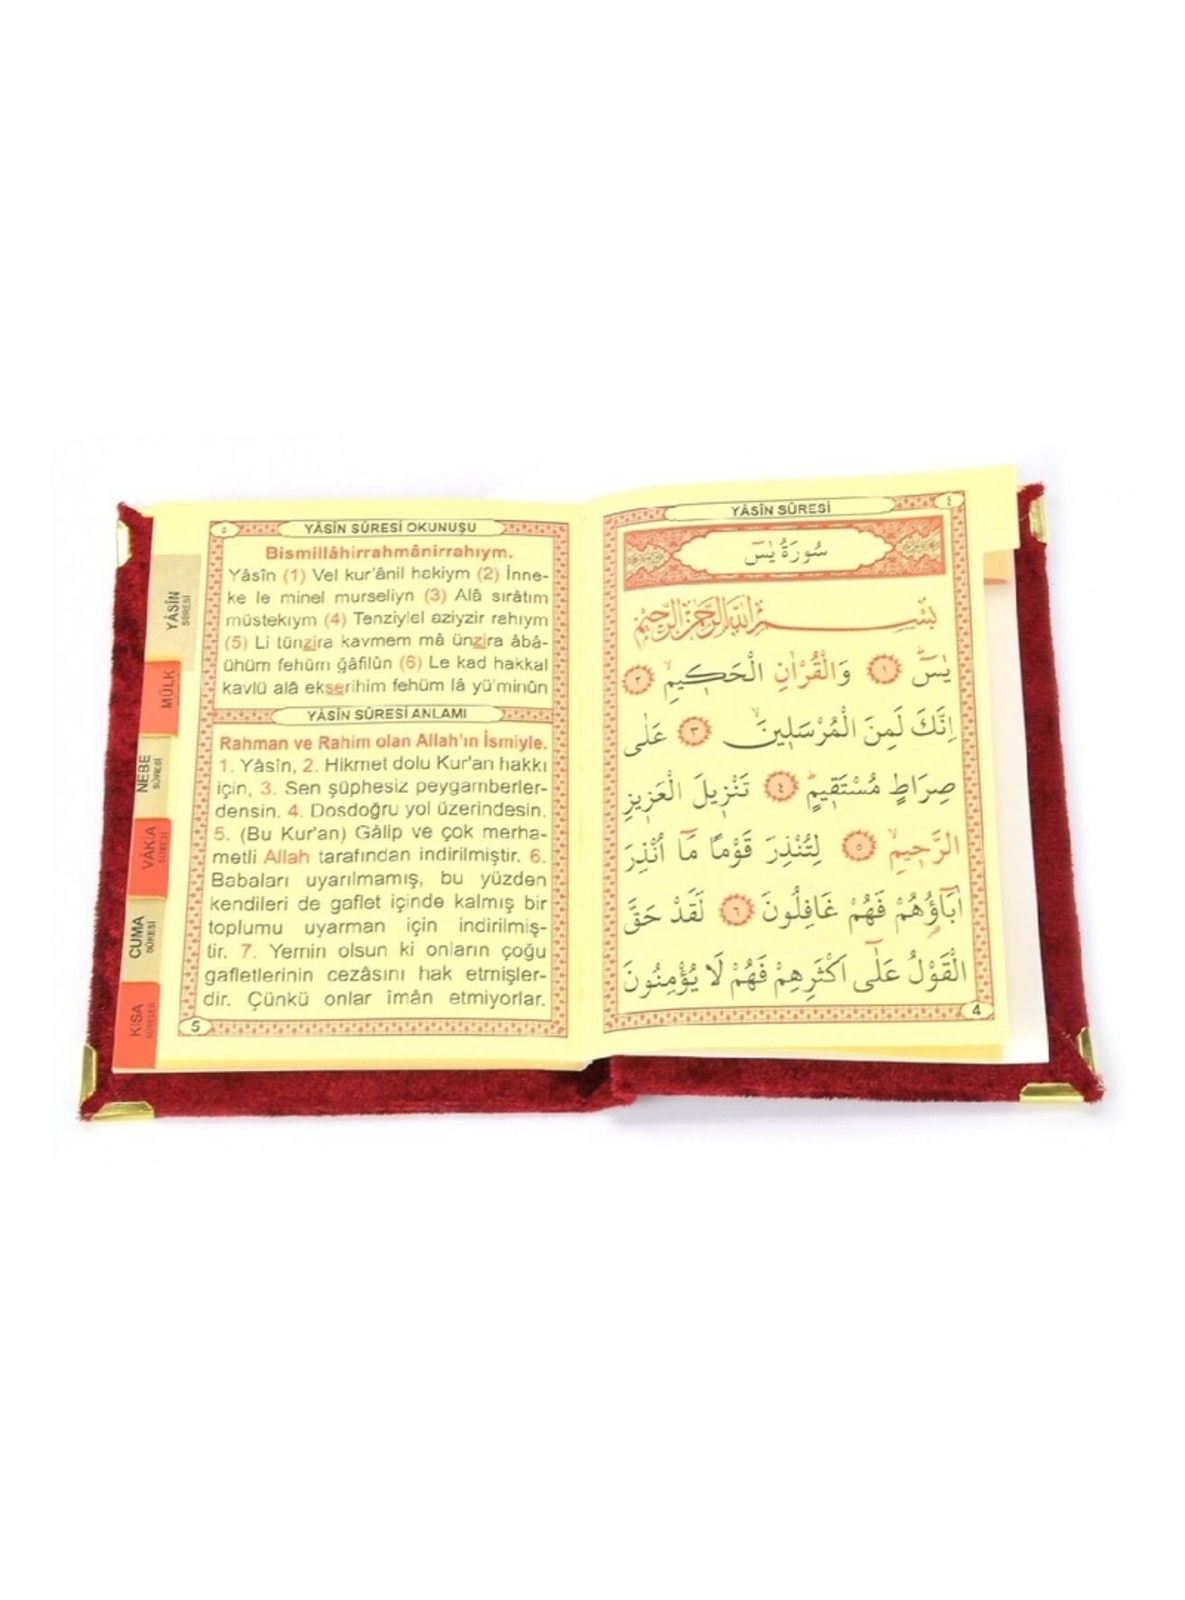 ٥
YÂSÎN SÛRESİ OKUNUŞU
Bismillâhirrahmânirrahıym.
Yâsîn (1) Vel kur'ânil hakiym (2) İnne-
ke le minel murseliyn (3) Alâ sırâtım
müstekıym (4) Tenziylel aziyzir rahıym
(5) Li tünzira kavmem mâ ünzira âbâ-
ühüm fehüm ğâfilûn (6) Le kad hakkal
kavlü alâ ekserihim fehüm lâ yü'minûn
YÂSÎN SÛRESİ ANLAMI
Rahman ve Rahim olan Allah'ın İsmiyle.
1. Yâsîn, 2. Hikmet dolu Kur'an hakkı
için, 3. Sen şüphesiz peygamberler-
densin. 4. Dosdoğru yol üzerindesin.
5. (Bu Kur'an) Gâlip ve çok merha-
metli Allah tarafından indirilmiştir. 6.
Babaları uyarılmamış, bu yüzden
kendileri de gaflet içinde kalmış bir
toplumu uyarman için indirilmiş-
tir. 7. Yemin olsun ki onların çoğu
gafletlerinin cezâsını hak etmişler-
dir. Çünkü onlar îmân etmiyorlar.
5
YÂSİN
SÛRESİ
MÜLK
NEBE
SÛRESİ
VÂKIA
SÛRESİ
CUMA
SÛRESİ
KISA
SÛRELER
YÂSÎN SÛRESİ
٤
سُورَةُ يٰسٓ
بِسْمِ اللّٰهِ الرَّحْمٰنِ الرَّحِيمِ
يٰسٓ ۚ ﴿١﴾ وَالْقُرْاٰنِ الْحَك۪يمِۙ ﴿٢﴾
اِنَّكَ لَمِنَ الْمُرْسَل۪ينَۙ ﴿٣﴾ عَلٰى
صِرَاطٍ مُسْتَق۪يمٍۜ ﴿٤﴾ تَنْز۪يلَ الْعَز۪يزِ
الرَّح۪يمِۙ ﴿٥﴾ لِتُنْذِرَ قَوْمًا مَٓا اُنْذِرَ
اٰبَٓاؤُ۬هُمْ فَهُمْ غَافِلُونَ ﴿٦﴾ لَقَدْ حَقَّ
الْقَوْلُ عَلٰٓى اَكْثَرِهِمْ فَهُمْ لَا يُؤْمِنُونَ
4